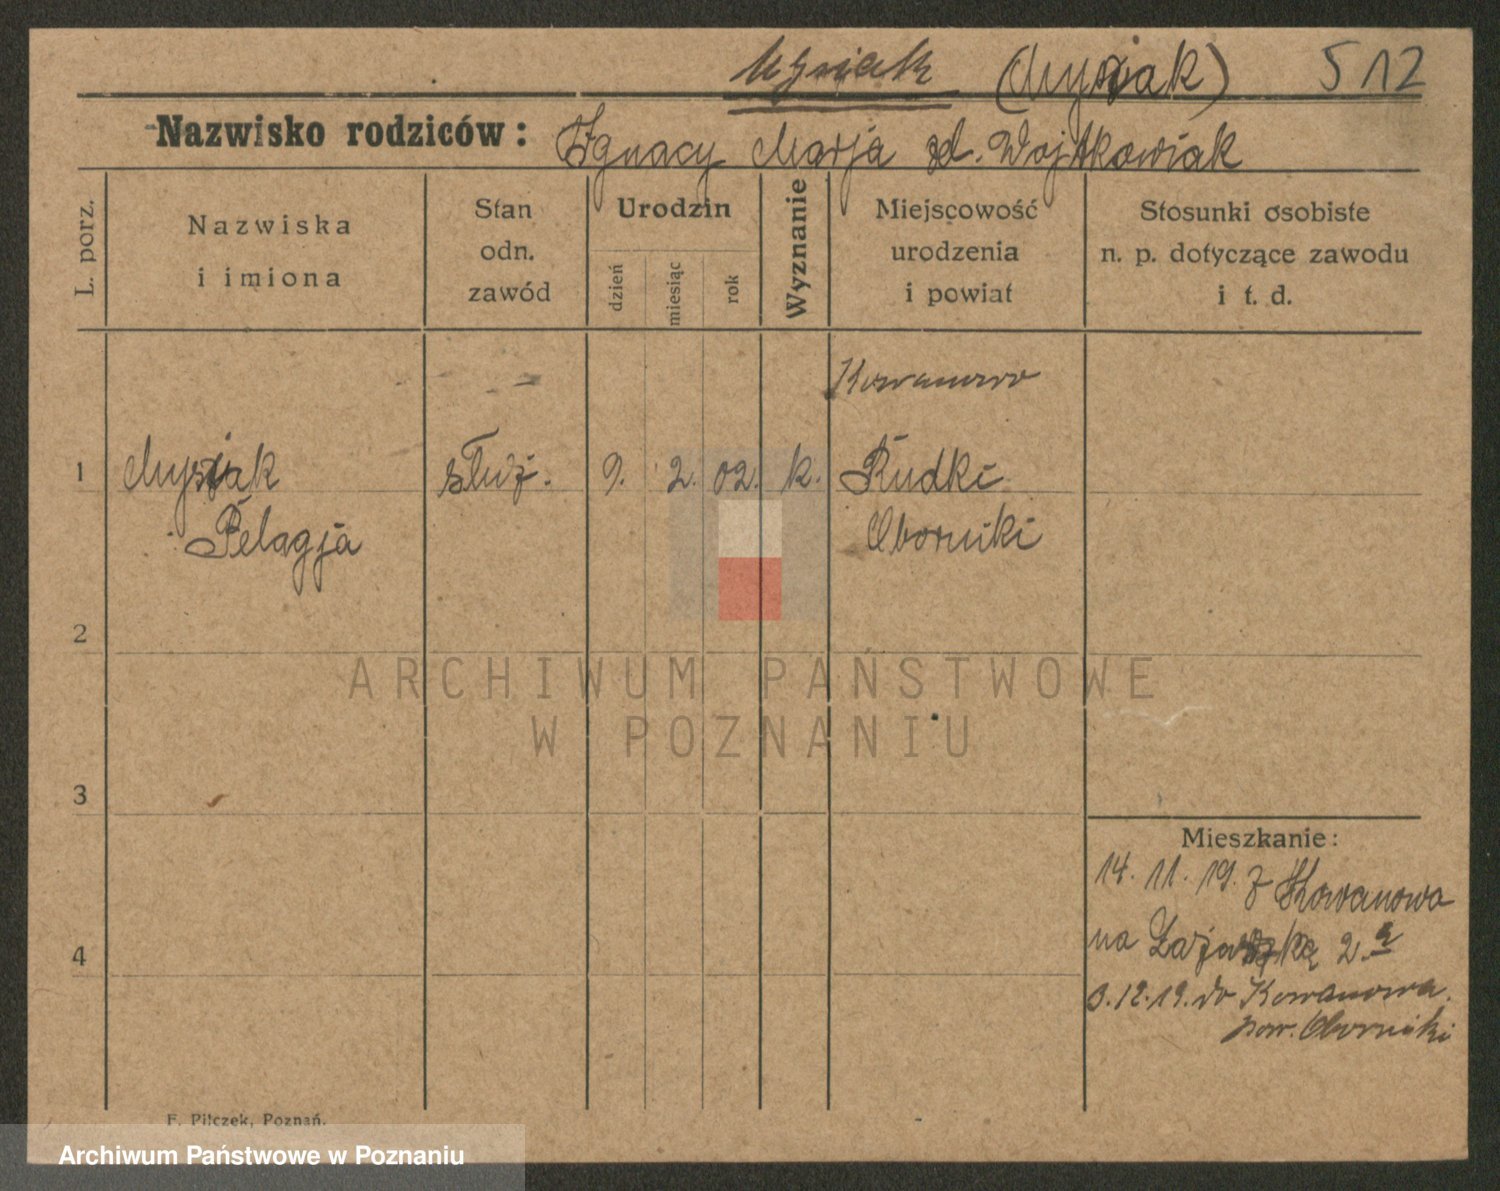 (Mysiak) 512
Nazwisko rodziców: Ignacy Marja zd. Wojtkowiak
L. porz.
Nazwiska
i imiona
Stan
odn.
zawód
Urodzin
dzień
miesiąc
rok
Wyznanie
Miejscowość
urodzenia
i powiat
Stosunki osobiste
n. p. dotyczące zawodu
i t. d.
Kowanowo
1 Mysiak służ. 9. 2. 02. k. Rudki
Pelagja Oborniki
2
ARCHIWUM PAŃSTWOWE
W POZNANIU
3
Mieszkanie:
14. 11. 19. z Kowanowa
na 2.
4
3.12.19. do Kowanowa.
pow. Oborniki
F. Pilczek, Poznań.
Archiwum Państwowe w Poznaniu